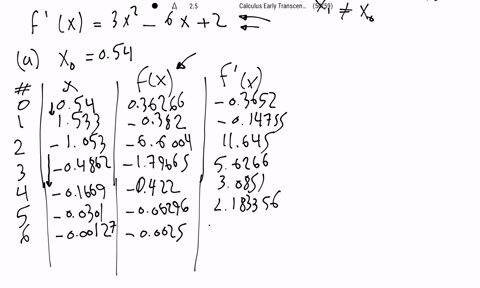 2.5 Calculus Early Transcen... (59/59)
f'(x) = 3x² - 6x + 2
x₁ ≠ x₀
(a) x₀ = 0.54
# x f(x) f'(x)
0 0.54 0.36266 -0.3652
1 1.533 -0.382 -0.14755
2 -1.053 -6.6004 11.645
3 -0.4862 -1.79665 5.6266
4 -0.1669 -0.422 3.0851
5 -0.0301 -0.06296 2.183356
6 -0.00127 -0.0025